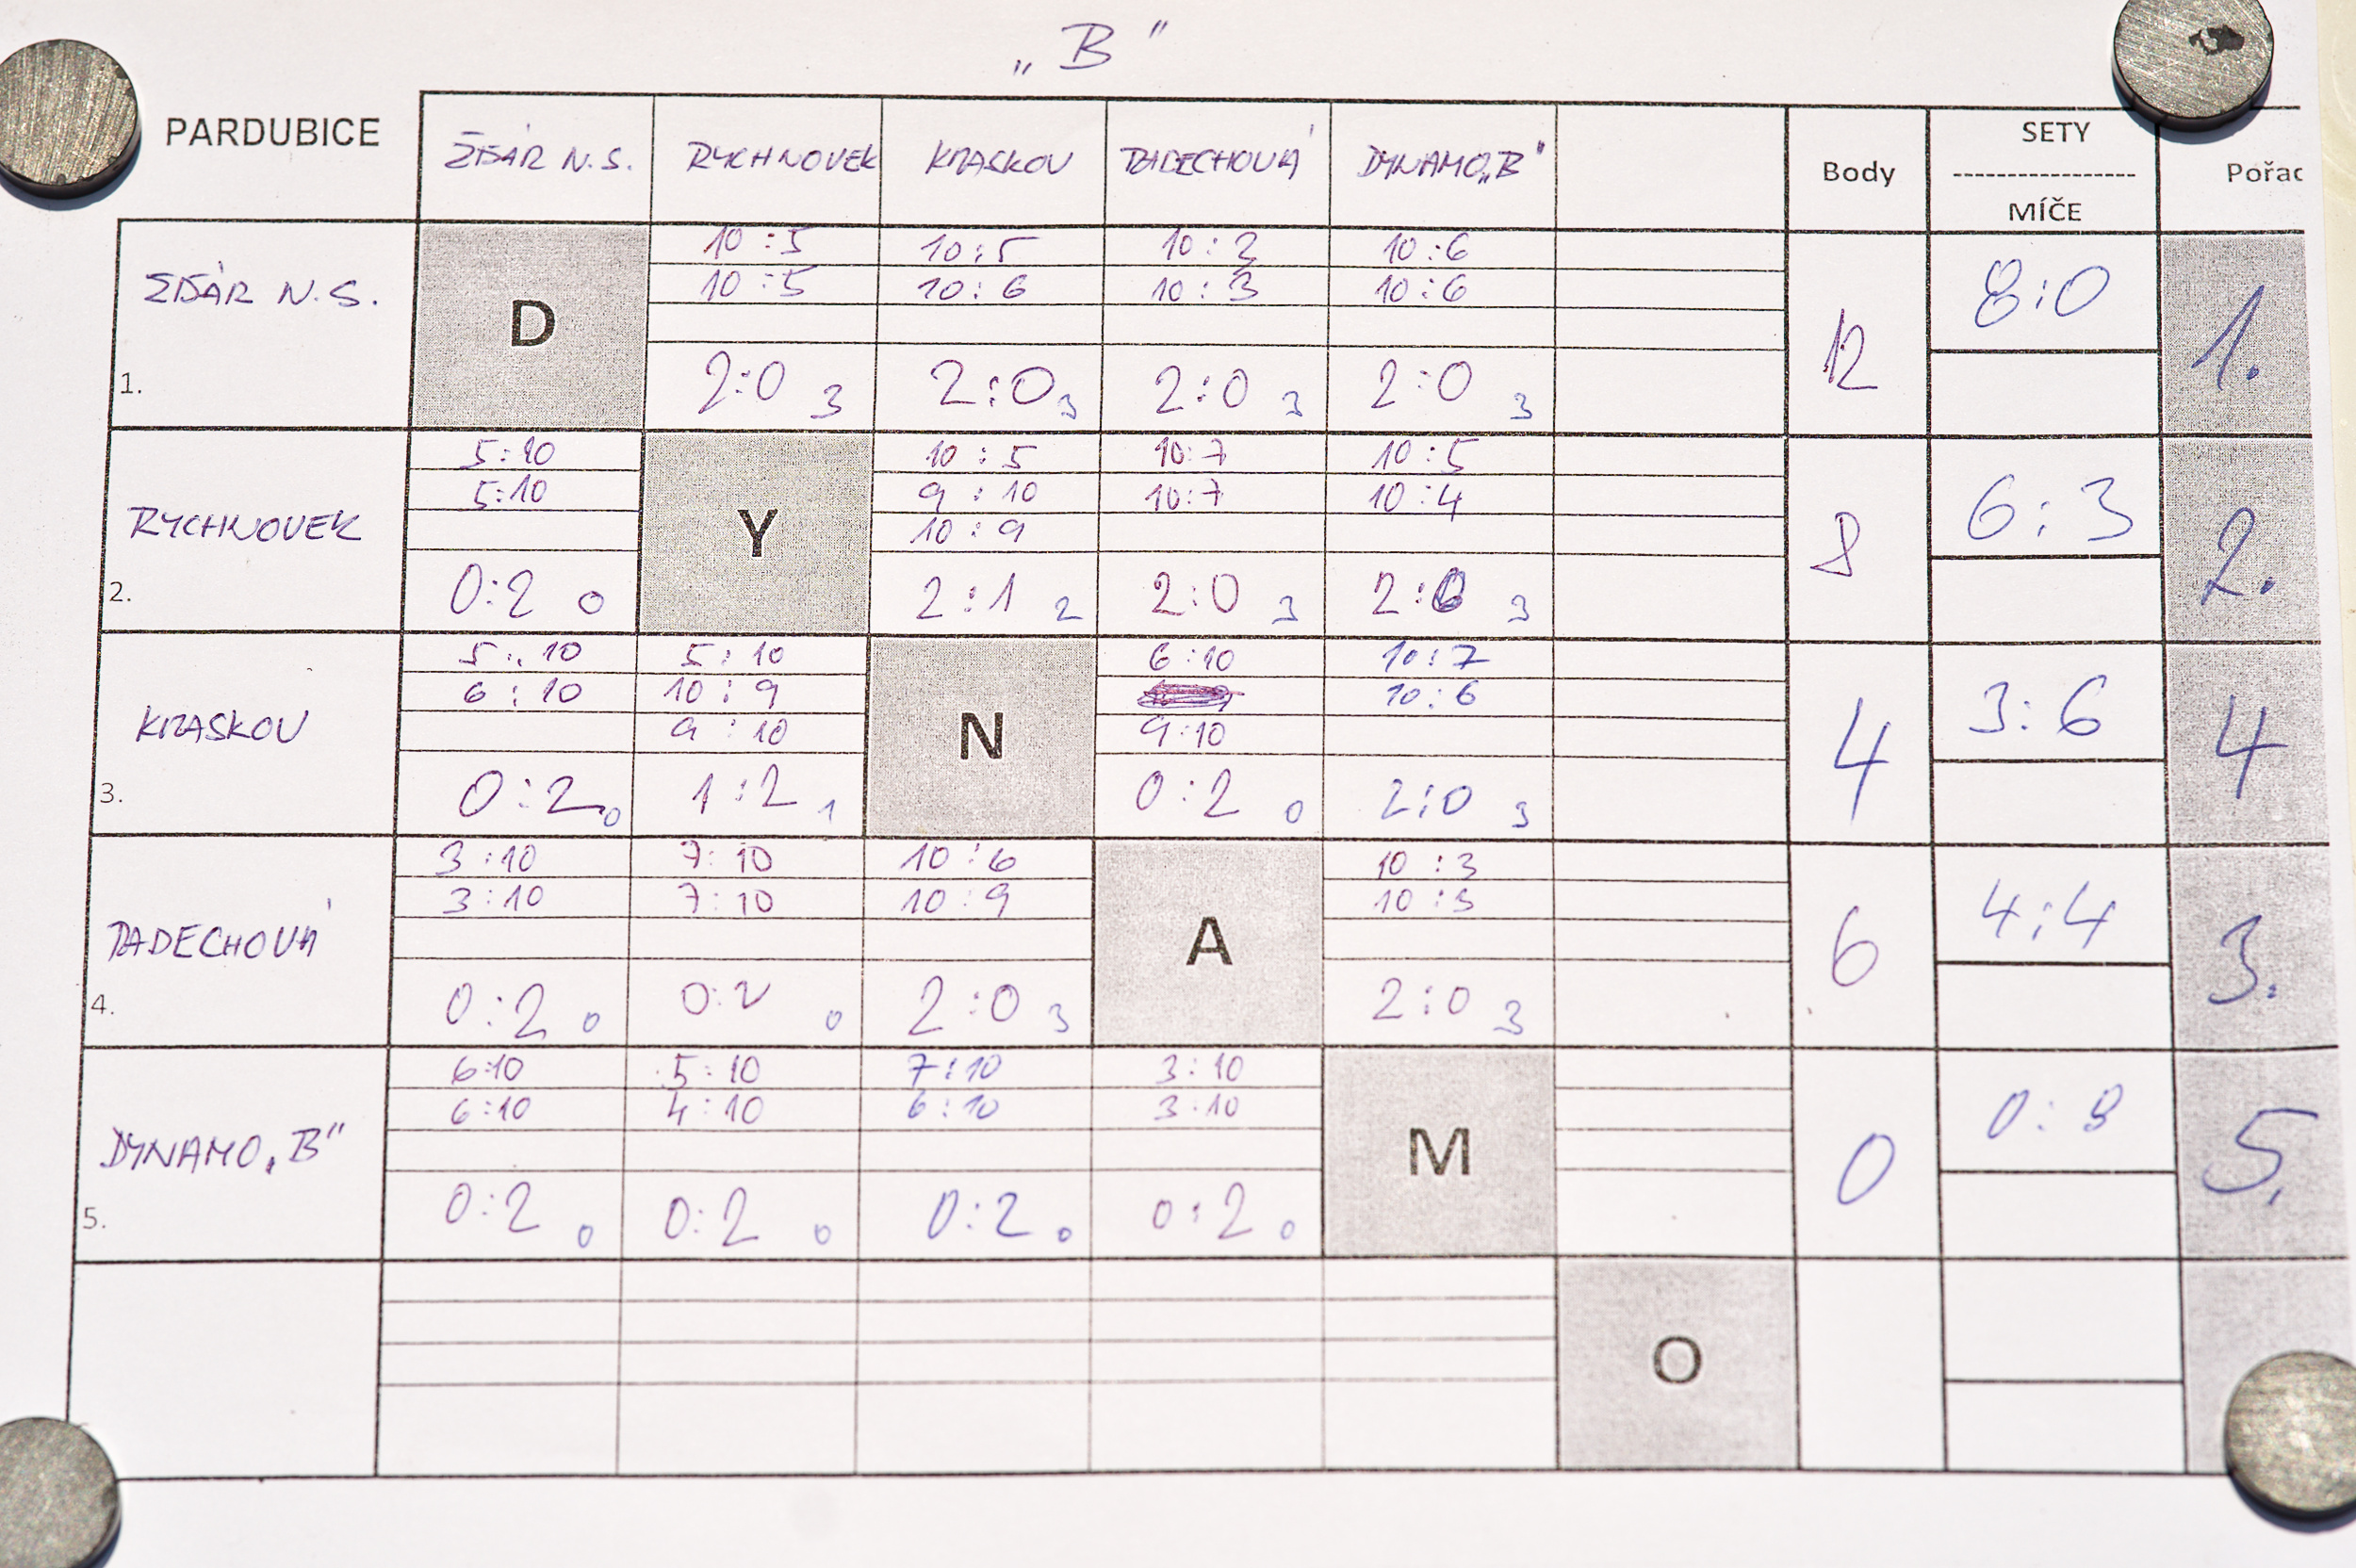 „B"
PARDUBICE ŽĎÁR N.S. RYCHNOVEK KRASKOV RADECHOVÁ DYNAMO„B" Body SETY
----------------
MÍČE
ŽĎÁR N.S. D 10:5 10:5 10:3 10:6 12 8:0 1.
10:5 10:6 10:3 10:6
1. 2:0 3 2:0 3 2:0 3 2:0 3
RYCHNOVEK 5:10 Y 10:5 10:7 10:5 8 6:3 2.
5:10 9:10 10:7 10:4
10:9
2. 0:2 0 2:1 2 2:0 3 2:0 3
KRASKOV 5:10 5:10 N 6:10 10:7 4 3:6 4
6:10 10:9 10:6
9:10 9:10
3. 0:2 0 1:2 1 0:2 0 2:0 3
RADECHOVÁ 3:10 7:10 10:6 A 10:3 6 4:4 3.
3:10 7:10 10:9 10:3
4. 0:2 0 0:2 0 2:0 3 2:0 3
DYNAMO„B" 6:10 5:10 7:10 3:10 M 0 0:8 5.
6:10 4:10 6:10 3:10
5. 0:2 0 0:2 0 0:2 0 0:2 0
O